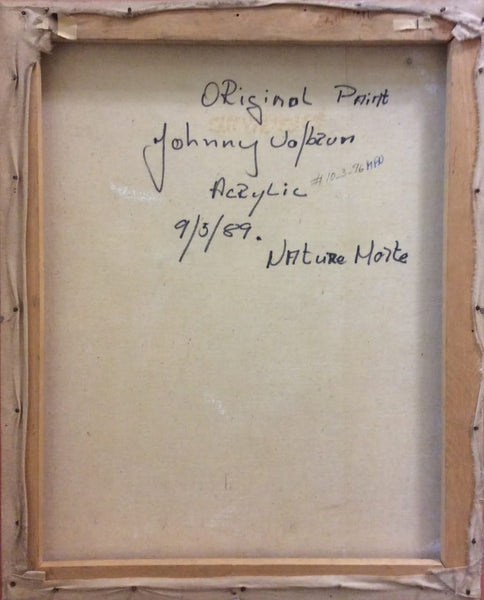 ORiginal Paint
Johnny
Acrylic
#10-3-76 MFD
9/3/89.
Nature Morte